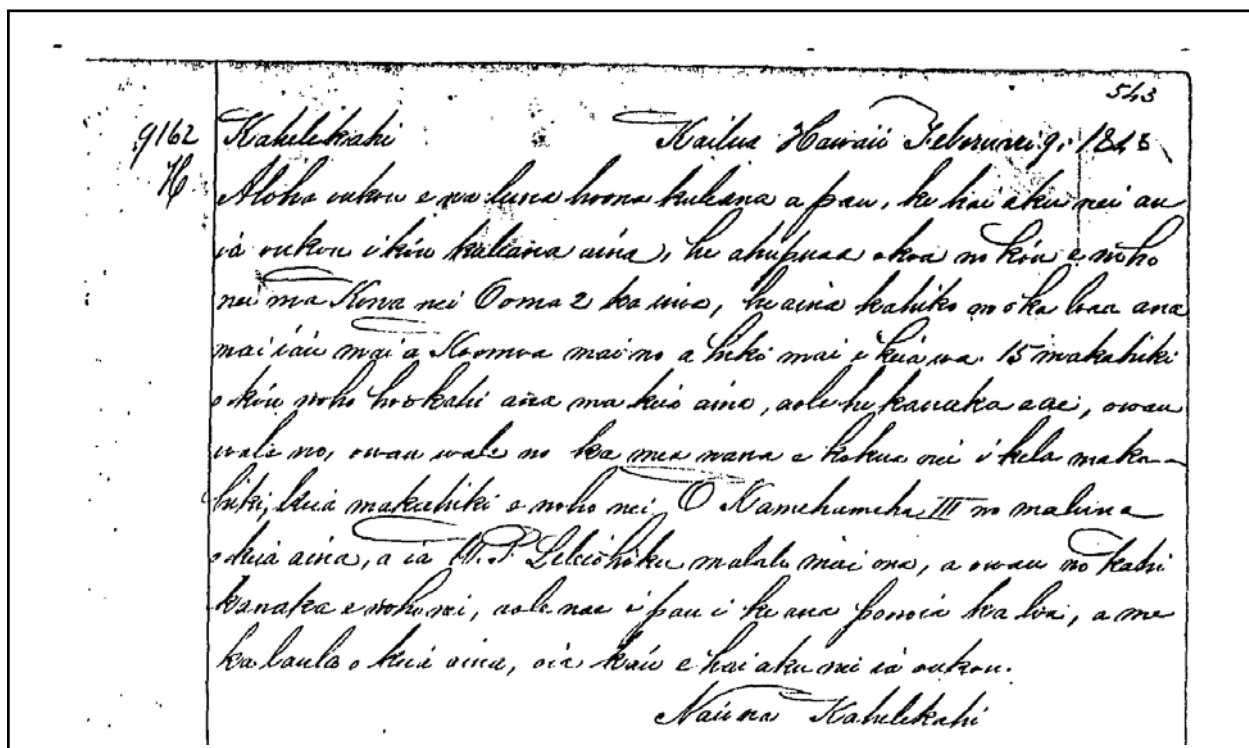 543
9162 Kahelekahi Kailua Hawaii Feberuari 9. 1848
H Aloha oukou e na luna hoona kuleana a pau, ke hai aku nei au
ia oukou i ko'u kuleana aina, he ahupuaa okoa no ko'u e noho
nei ma Kona nei Ooma 2 ka inoa, he aina kahiko no o ka loaa ana
mai ia'u mai a Koomoa mai no a hiki mai i keia wa. 15 makahiki
o ko'u noho hookahi ana ma keia aina, aole he kanaka e ae, owau
wale no, owau wale no ka mea nana e kokua nei i kela maka-
hiki, keia makahiki e noho nei. O Kamehameha III no maluna
o keia aina, a ia W. P. Leleiohoku malalo mai ona, a owau no kahi
kanaka e noho nei, aole nae i pau i ke ana ponoia ka loa, a me
ka laula o keia aina, oia ka'u e hai aku nei ia oukou.
Na'u na Kahelekahi